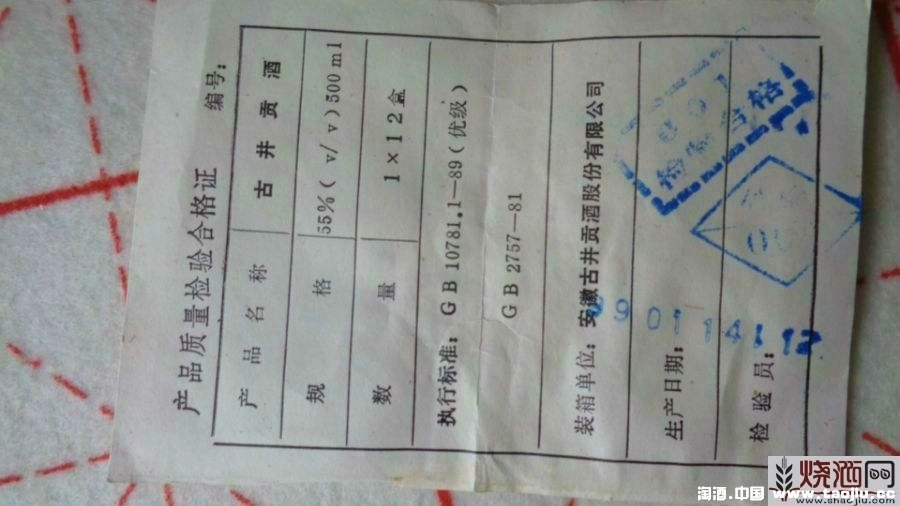 产品质量检验合格证
编号:
产品名称 古井贡酒
规格 55%(v/v)500ml
数量 1×12盒
执行标准: GB 10781.1—89(优级)
GB 2757—81
装箱单位: 安徽古井贡酒股份有限公司
生产日期:
检验员:
合格
烧酒网
www.shaojiu.com
淘酒.中国 www.taojiu.cc